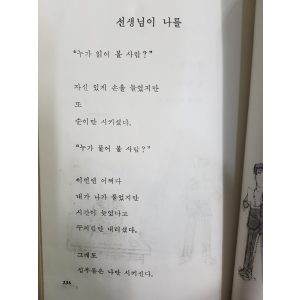 선생님이 나를
"누가 읽어 볼 사람?"
자신 있게 손을 들었지만
또
순이만 시키셨다.
"누가 풀어 볼 사람?"
이번엔 어쩌다
내가 나가 풀었지만
시간이 늦었다고
꾸지람만 내리셨다.
그래도
심부름은 나만 시키신다.